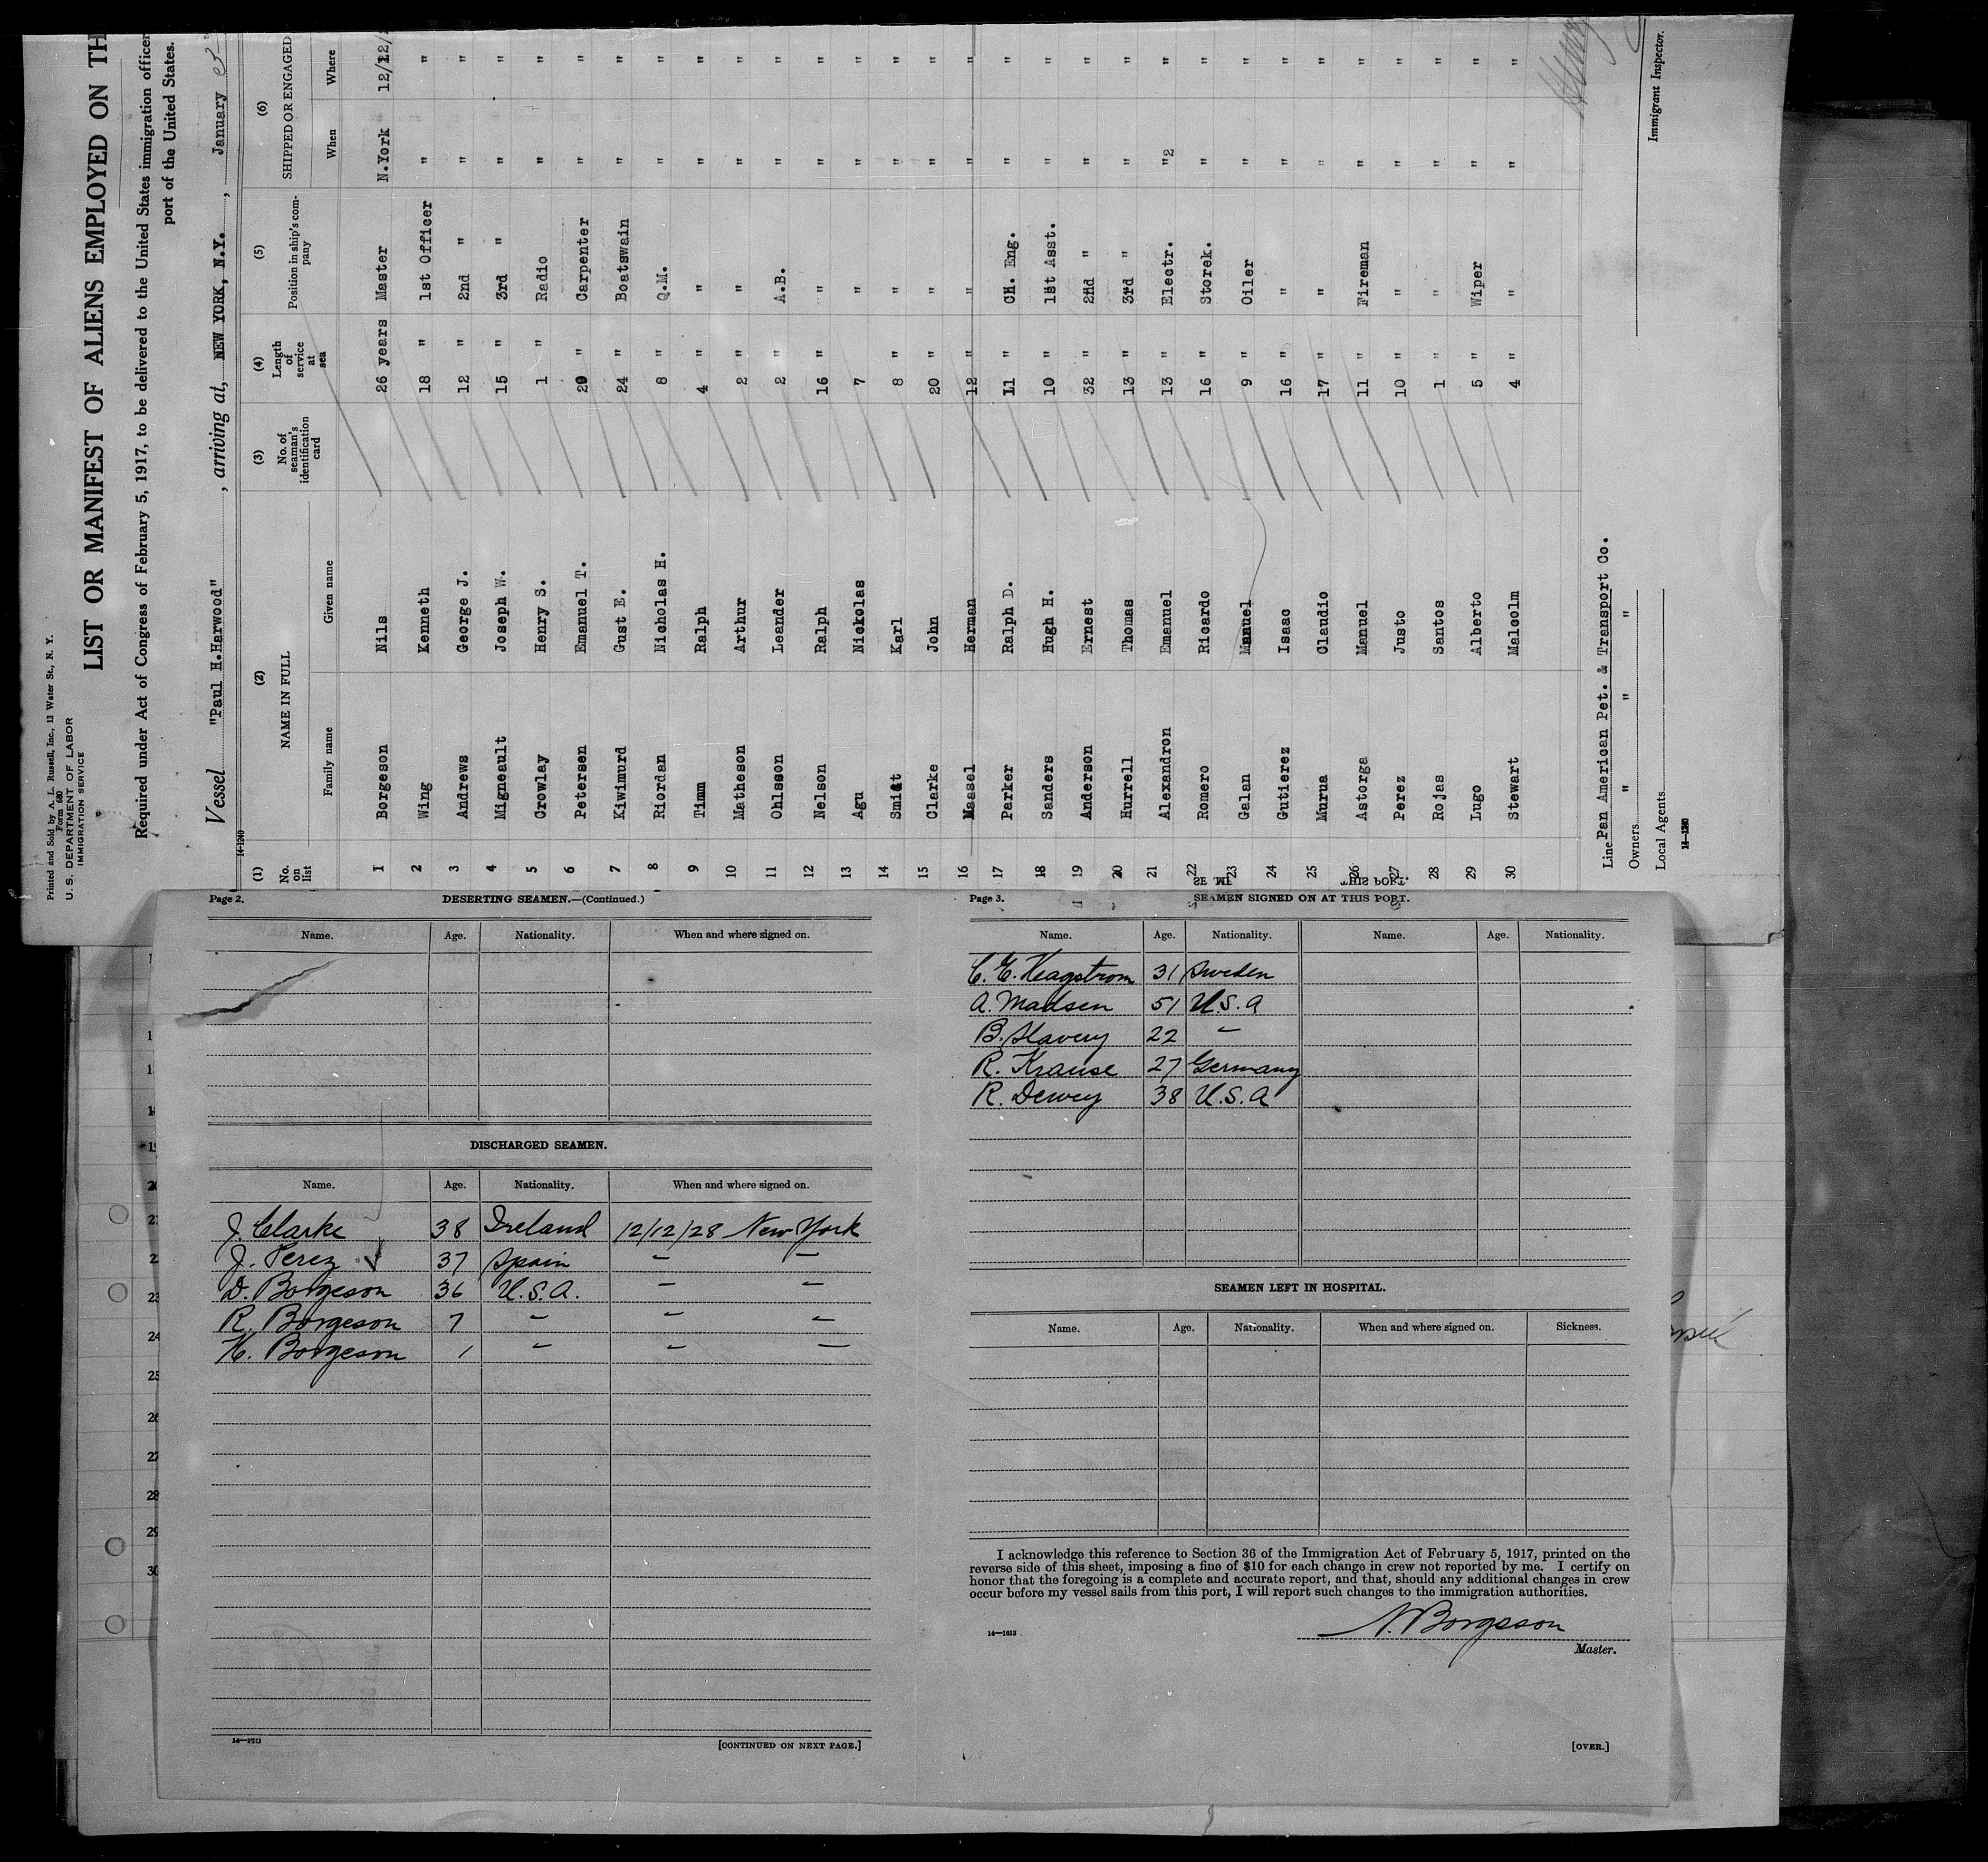 Printed and Sold by A. L. Russell, Inc., 13 Water St., N. Y.
Form 680
U. S. DEPARTMENT OF LABOR
IMMIGRATION SERVICE
LIST OR MANIFEST OF ALIENS EMPLOYED ON TH
Required under Act of Congress of February 5, 1917, to be delivered to the United States immigration officer
port of the United States.
Vessel "Paul H.Harwood", arriving at, NEW YORK, N.Y., January
14-1240
(1) (2) (3) (4) (5) (6)
No. on list NAME IN FULL No. of seaman's identification card Length of service at sea Position in ship's company SHIPPED OR ENGAGED
Family name Given name When Where
1 Borgeson Nils 26 years Master N.York 12/12/
2 Wing Kenneth 18 " 1st Officer " "
3 Andrews George J. 12 " 2nd " " "
4 Migneault Joseph W. 15 " 3rd " " "
5 Crowlay Henry S. 1 " Radio " "
6 Petersen Emanuel T. 20 " Carpenter " "
7 Kiwimurd Gust E. 24 " Boatswain " "
8 Riordan Nicholas H. 8 " Q.M. " "
9 Timm Ralph 4 " " " "
10 Matheson Arthur 2 " " " "
11 Ohlsson Leander 2 " A.B. " "
12 Nelson Ralph 16 " " " "
13 Agu Nickolas 7 " " " "
14 Smidt Karl 8 " " " "
15 Clarke John 20 " " " "
16 Maasel Herman 12 " " " "
17 Parker Ralph D. 11 " Ch. Eng. " "
18 Sanders Hugh H. 10 " 1st Asst. " "
19 Anderson Ernest 32 " 2nd " " "
20 Hurrell Thomas 13 " 3rd " " "
21 Alexandron Emanuel 13 " Electr. "2 "
22 Romero Ricardo 16 " Storek. " "
23 Galan Manuel 9 " Oiler " "
24 Gutierez Isaac 16 " " " "
25 Murua Claudio 17 " " " "
26 Astorga Manuel 11 " Fireman " "
27 Perez Justo 10 " " " "
28 Rojas Santos 1 " " " "
29 Lugo Alberto 5 " Wiper " "
30 Stewart Malcolm 4 " " " "
Line Pan American Pet. & Transport Co.
Owners " " " "
Local Agents
Immigrant Inspector.
14-1240
Page 2. DESERTING SEAMEN.—(Continued.)
Name. Age. Nationality. When and where signed on.
DISCHARGED SEAMEN.
Name. Age. Nationality. When and where signed on.
J. Clarke 38 Ireland 12/12/28 New York
J. Perez 37 Spain " "
D. Borgeson 36 U.S.A. " "
R. Borgeson 7 " " "
H. Borgeson 1 " " "
14—1613
[CONTINUED ON NEXT PAGE.]
Page 3. SEAMEN SIGNED ON AT THIS PORT.
Name. Age. Nationality. Name. Age. Nationality.
C. E. Heagstrom 31 Sweden
A. Madsen 51 U.S.A
B. Slavery 22 "
R. Krause 27 Germany
R. Dewey 38 U.S.A
SEAMEN LEFT IN HOSPITAL.
Name. Age. Nationality. When and where signed on. Sickness.
I acknowledge this reference to Section 36 of the Immigration Act of February 5, 1917, printed on the
reverse side of this sheet, imposing a fine of $10 for each change in crew not reported by me. I certify on
honor that the foregoing is a complete and accurate report, and that, should any additional changes in crew
occur before my vessel sails from this port, I will report such changes to the immigration authorities.
N. Borgeson
14—1613
Master.
[OVER.]
19
20
21
22
23
24
25
26
27
28
29
30